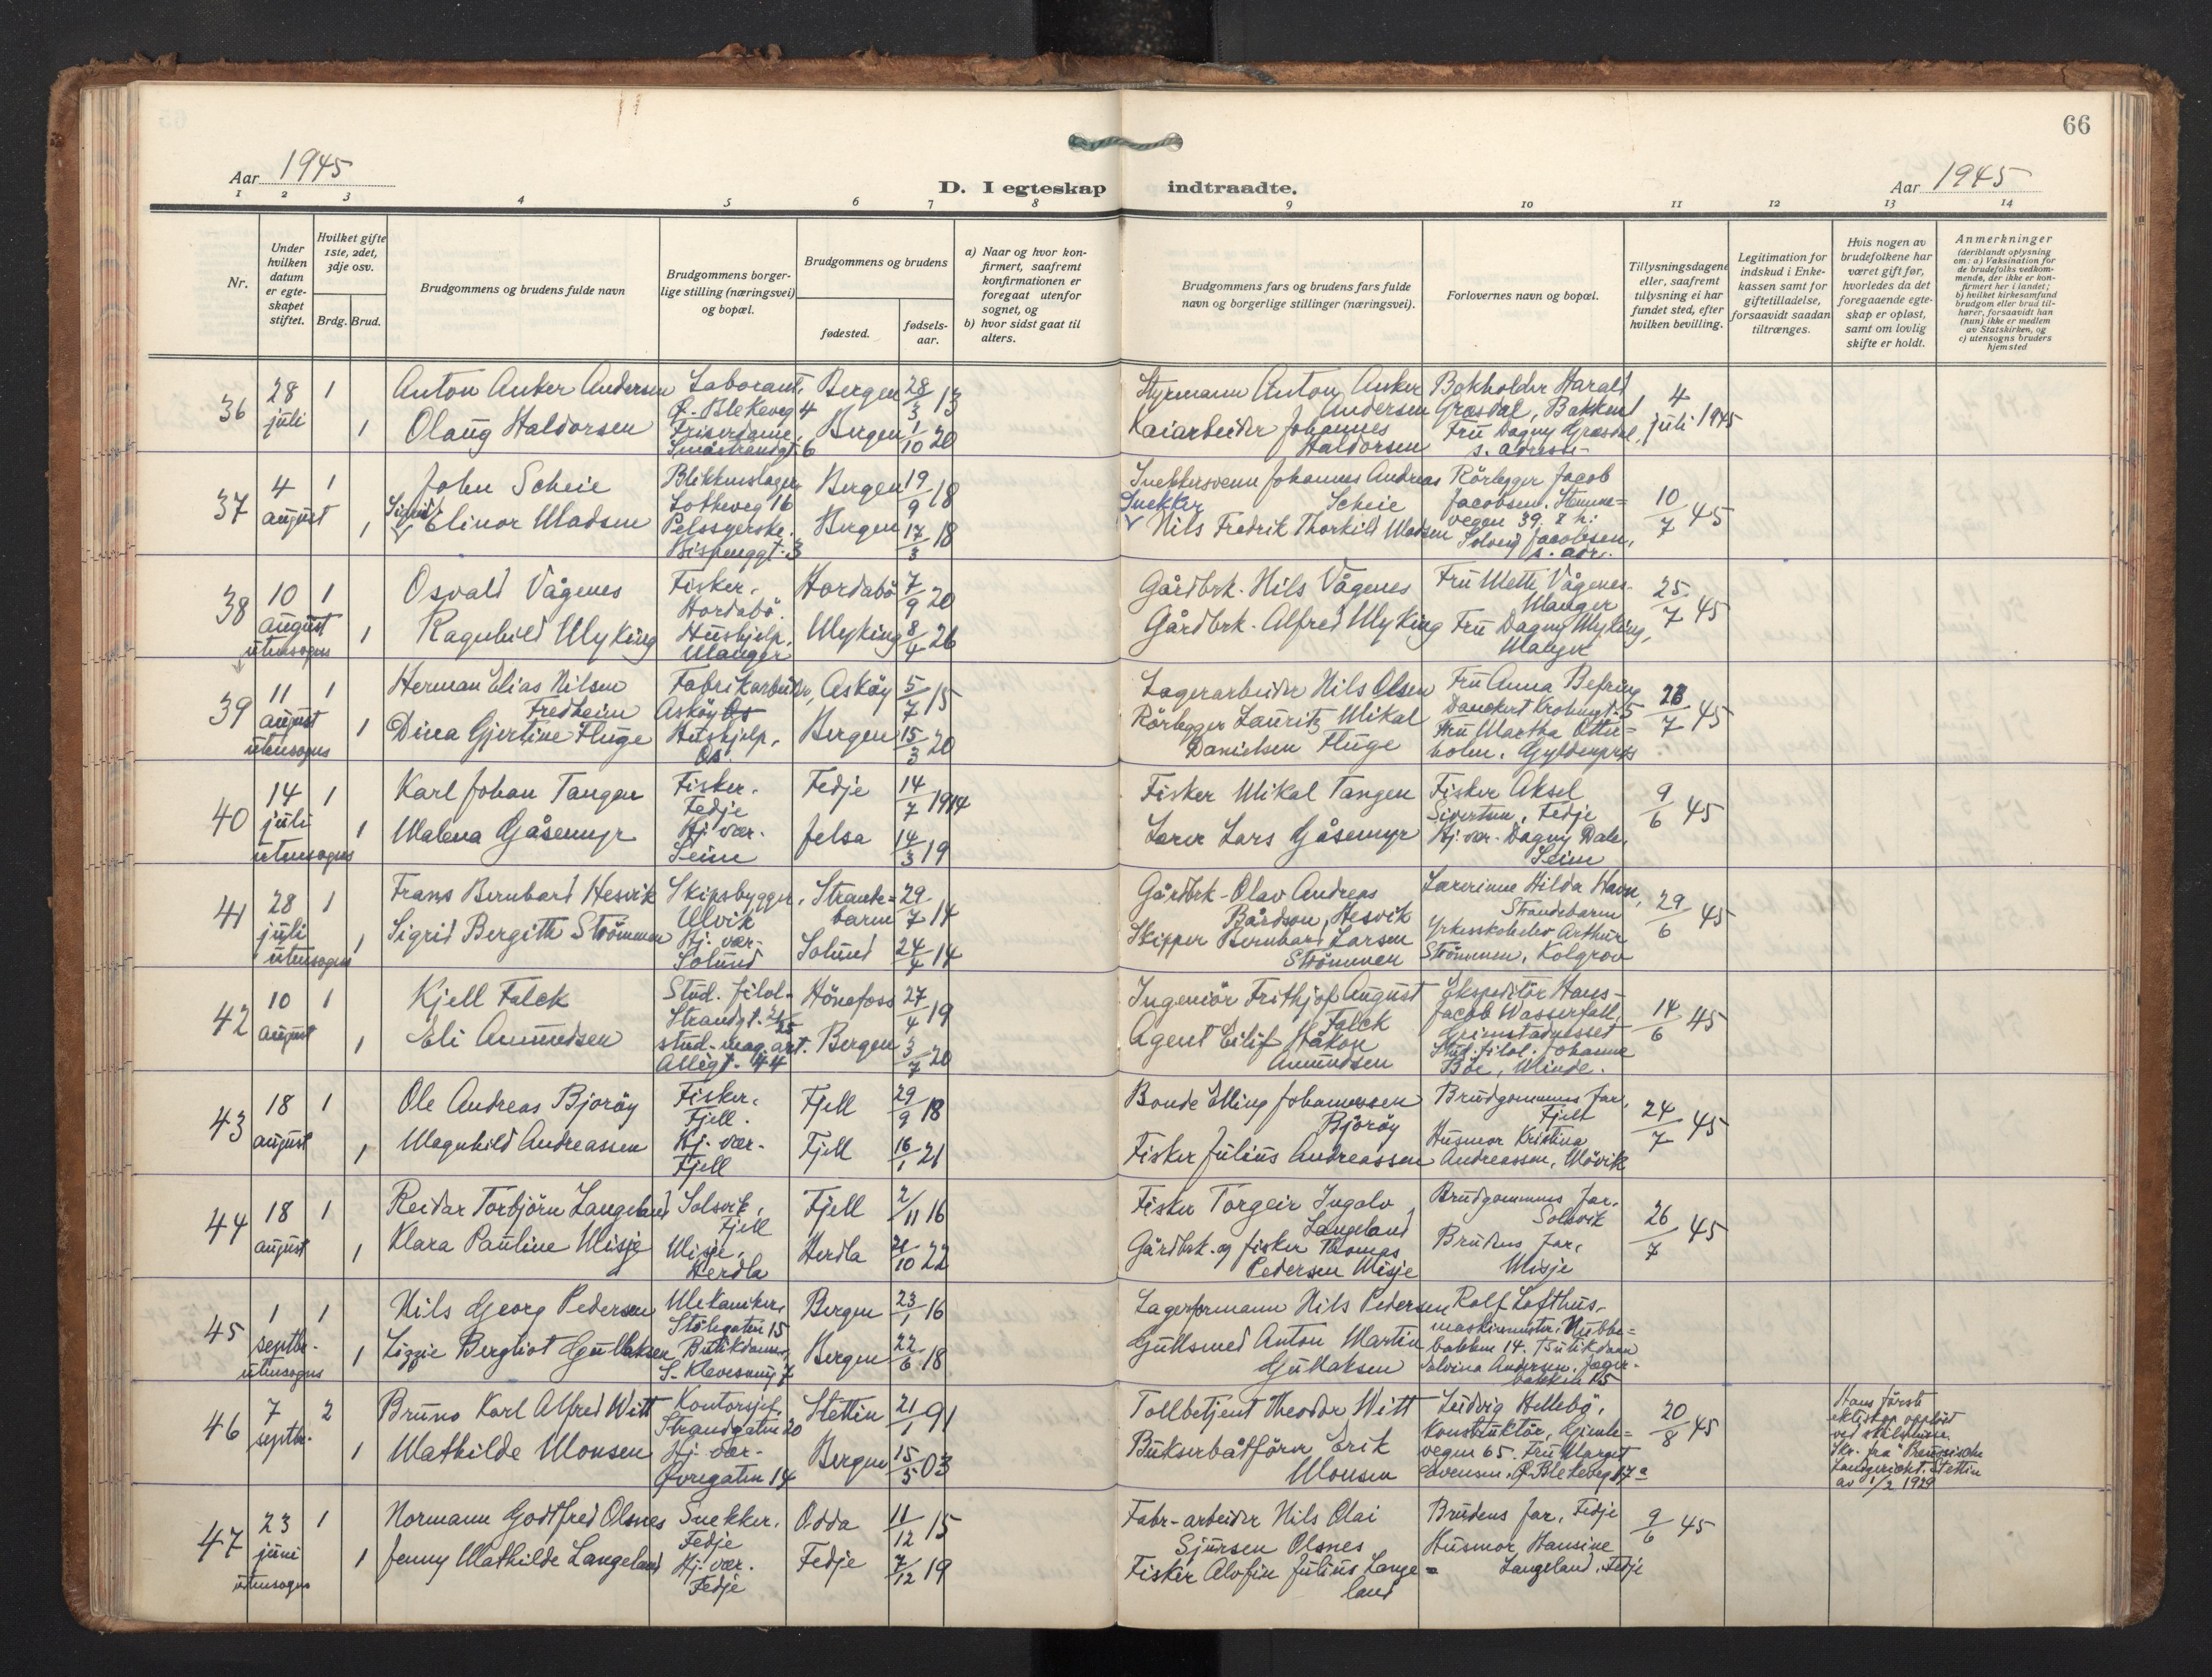 66
Aar 1945
D. I egteskap indtraadte.
Aar 1945
1 2 3 4 5 6 7 8 9 10 11 12 13 14
Nr.
Under hvilken datum er egteskapet stiftet.
Hvilket gifte 1ste, 2det, 3dje osv.
Brdg. Brud.
Brudgommens og brudens fulde navn
Brudgommens borgerlige stilling (næringsvei) og bopæl.
Brudgommens og brudens
fødested.
fødselsaar.
a) Naar og hvor konfirmert, saafremt konfirmationen er foregaat utenfor sognet, og
b) hvor sidst gaat til alters.
Brudgommens fars og brudens fars fulde navn og borgerlige stillinger (næringsvei).
Forlovernes navn og bopæl.
Tillysningsdagene eller, saafremt tillysning ei har fundet sted, efter hvilken bevilling.
Legitimation for indskud i Enkekassen samt for giftetilladelse, forsaavidt saadan tiltrænges.
Hvis nogen av brudefolkene har været gift før, hvorledes da det foregaaende egteskap er opløst, samt om lovlig skifte er holdt.
Anmerkninger
(deriblandt oplysning om: a) Vaksination for de brudefolks vedkommende, der ikke er konfirmert her i landet;
b) hvilket kirkesamfund brudgom eller brud tilhører, forsaavidt han (hun) ikke er medlem av Statskirken, og
c) utensogns bruders hjemsted
36 28 juli 1 Anton Anker Andersen Laborant, Ø. Blekeveg 4 Bergen 28/3 13 Styrmann Anton Anker Andersen Bokholder Harald Græsdal, Bakken 1 4 juli 1945
1 Olaug Haldorsen Friserdame, Småstrandgt. 6 Bergen 1/10 20 Kaiarbeider Johannes Haldorsen Frü Dagny Græsdal, s. adresse
37 4 august 1 John Scheie Blikkenslager, Lotheveg 16 Bergen 19/9 18 Snekkersvenn Johannes Andreas Scheie Rörlegger Jacob Jacobsen, Stemmevegen 39, 10/7 45
1 Sigrid Elinor Madsen Pelssyerske. Bispenggt. 3 Bergen 17/3 18 Snekker Nils Fredrik Thorkild Madsen Solveig Jacobsen, s. adr.
38 10 august utensogns 1 Osvald Vågenes Fisker, Hordabö Hordabö 7/9 20 Gårdbrk. Nils Vågenes Frü Mette Vågenes, Manger 25/7 45
1 Ragnhild Myking Hushjelp, Manger Myking 8/4 26 Gårdbrk. Alfred Myking Frü Dagny Myking, Manger
39 11 august utensogns 1 Herman Elias Nilsen Fredheim Fabrikarbeider, Asköy Os Asköy 5/7 15 Lagerarbeider Nils Olsen Frü Anna Befring Danckert Krohnsgt. 5 28/7 45
1 Dina Gjertine Fluge Hushjelp, Os. Bergen 15/3 20 Rörlegger Lauritz Mikal Danielsen Fluge Frü Martha Otterholm, Gyldenpris
40 14 juli utensogns 1 Karl Johan Tangen Fisker. Fedje Fedje 14/7 1914 Fisker Mikal Tangen Fisker Aksel Sivertsen, Fedje 9/6 45
1 Malena Gåsemyr Hj. vær. Seim Jelsa 14/3 19 Lærer Lars Gåsemyr Hj. vær. Dagny Dale, Seim
41 28 juli utensogns 1 Frans Bernhard Hesvik Skipsbygger, Ulvik Strandebarm 29/7 14 Gårdbrk. Olav Andreas Bårdson Hesvik Lærerinne Hilda Havn, Strandebarm 29/6 45
1 Sigrid Bergith Strömmen Hj. vær. Solund Solund 24/4 14 Skipper Bernhard Larsen Strömmen Yrkesskoleelev Arthur Strömmen, Kolgrov
42 10 august 1 Kjell Falck Stud. filol. Strandgt. Hönefoss 27/4 19 Ingeniör Frithjof August Falck Ekspeditör Hans Jacob Wasserfall, Grimstadnesset 14/6 45
1 Eli Amundsen stud. mag. art. Allégt. 44 Bergen 3/7 20 Agent Eilif Håkon Amundsen Stud. filol. Johanne Böe, Minde.
43 18 august 1 Ole Andreas Bjoröy Fisker, Fjell. Fjell 29/9 18 Bonde Elling Johannessen Bjoröy Brudgommens far, Fjell 24/7 45
1 Magnhild Andreassen Hj. vær. Fjell Fjell 16/1 21 Fisker Julius Andreassen Husmor Kristina Andreassen, Mövik
44 18 august 1 Reidar Torbjörn Langeland Solsvik, Fjell Fjell 2/11 16 Fisker Torgeir Ingolv Langeland Brudgommens far, Solsvik 26/7 45
1 Klara Pauline Misje Misje, Herdla Herdla 21/10 22 Gårdbrk. og fisker Thomas Pedersen Misje Brudens far, Misje
45 1 septbr. utensogns 1 Nils Georg Pedersen Mekaniker, Stölegaten 15 Bergen 23/1 16 Lagerformann Nils Pedersen Rolf Lofthus, maskinmester, Nubbebakken 14.
1 Lizzie Bergliot Gullaksen Butikdame, S. Klevesmug 7 Bergen 22/6 18 Gullsmed Anton Martin Gullaksen Butikdame Salvina Andersen, Jægerbakken 15
46 7 septbr. 2 Bruno Karl Alfred Witt Kontorsjef, Strandgaten 20 Stettin 21/1 91 Tollbetjent Theodor Witt Ludvig Hellebö, Konstruktör, Gimlevegen 65. 20/8 45 Hans förste ekteskap opplöst ved skilsmisse. Skr. fra "Preussische Landgericht, Stettin av 1/2 1929
1 Mathilde Monsen Hj. vær. Øvregaten 14 Bergen 15/5 03 Bukserbåtförer Erik Monsen Frü Margit Svensen, Ø. Blekeveg 17a
47 23 juni utensogns 1 Normann Godtfred Olsnes Snekker. Fedje Odda 11/12 15 Fabr. arbeider Nils Olai Sjursen Olsnes Brudens far, Fedje 9/6 45
1 Jenny Mathilde Langeland Hj. vær. Fedje Fedje 7/12 19 Fisker Alofin Julius Langeland Husmor Hansine Langeland, Fedje